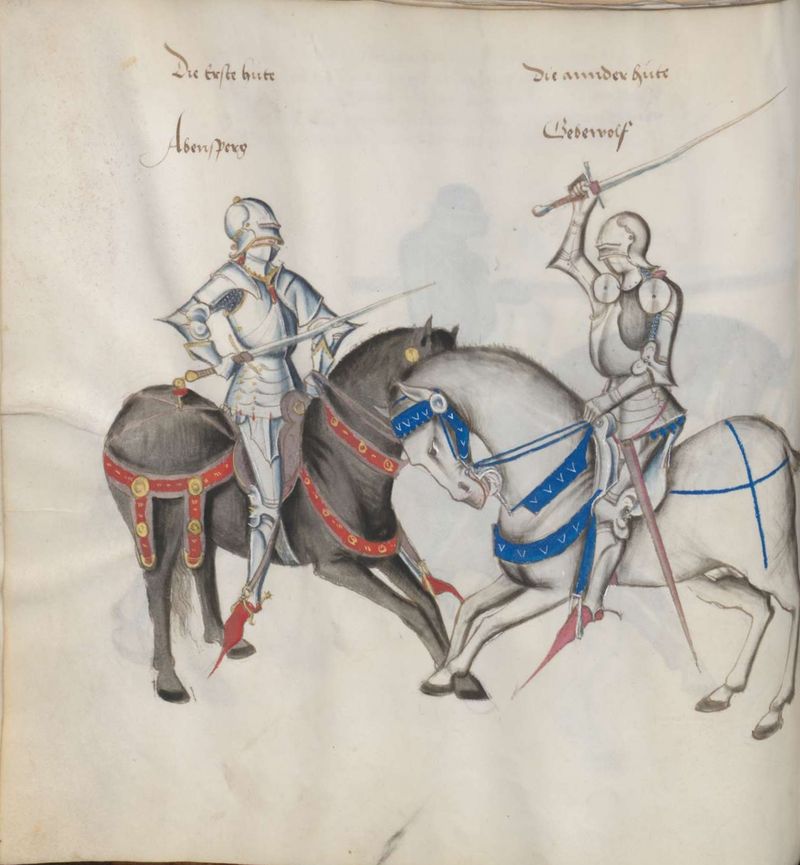 Die Erste hute
Abensperg
Die annder hute
Gebewolf